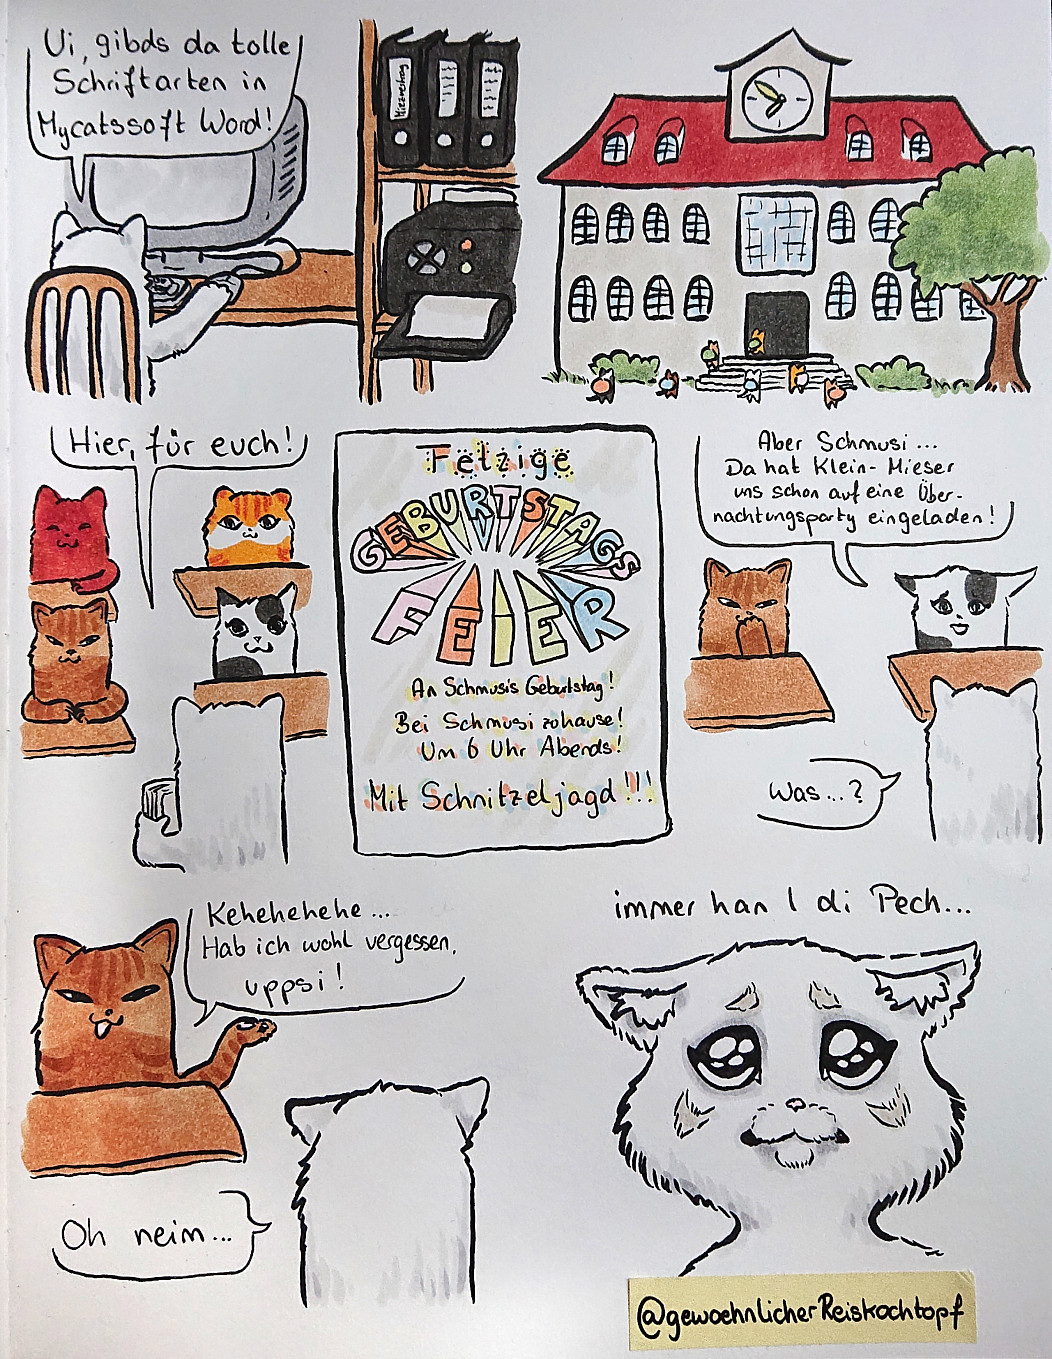 Ui, gibds da tolle
Schriftarten in
Mycatssoft Word!
Mietzvertrag
Hier, für euch!
Fetzige
GEBURTSTAGS
FEIER
An Schmusis Geburtstag!
Bei Schmusi zuhause!
Um 6 Uhr Abends!
Mit Schnitzeljagd!!!
Aber Schmusi...
Da hat Klein-Mieser
uns schon auf eine Über-
nachtungsparty eingeladen!
Was...?
Kehehehehe...
Hab ich wohl vergessen,
uppsi!
Oh neim...
immer han I di Pech...
@gewoehnlicherReiskochtopf